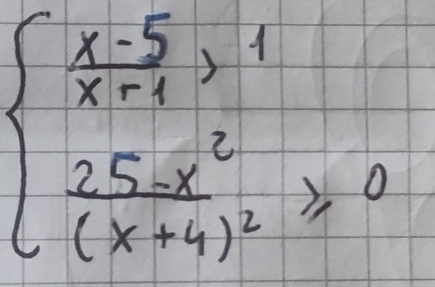 { (x - 5)/(x + 1) > 1
(25 - x²)/(x + 4)² ⩾ 0